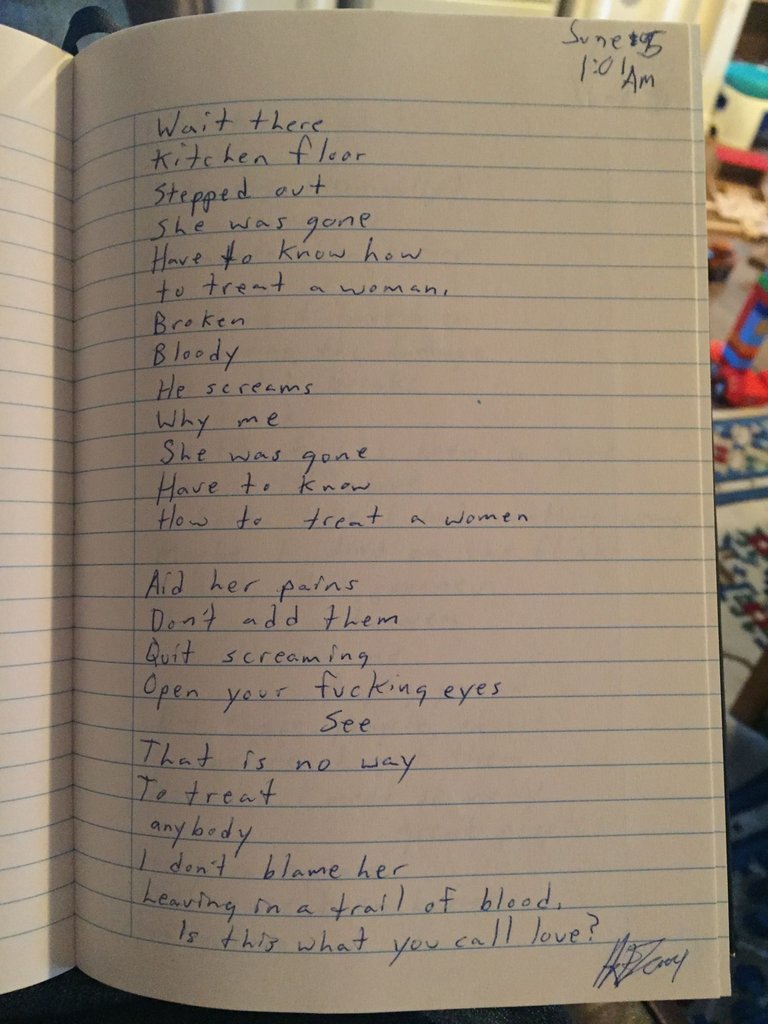 June 5
1:01 AM
Wait there
Kitchen floor
Stepped out
She was gone
Have to know how
to treat a woman.
Broken
Bloody
He screams
Why me
She was gone
Have to know
How to treat a women
Aid her pains
Don't add them
Quit screaming
Open your fucking eyes
See
That is no way
To treat
anybody
I don't blame her
Leaving in a trail of blood.
Is this what you call love?